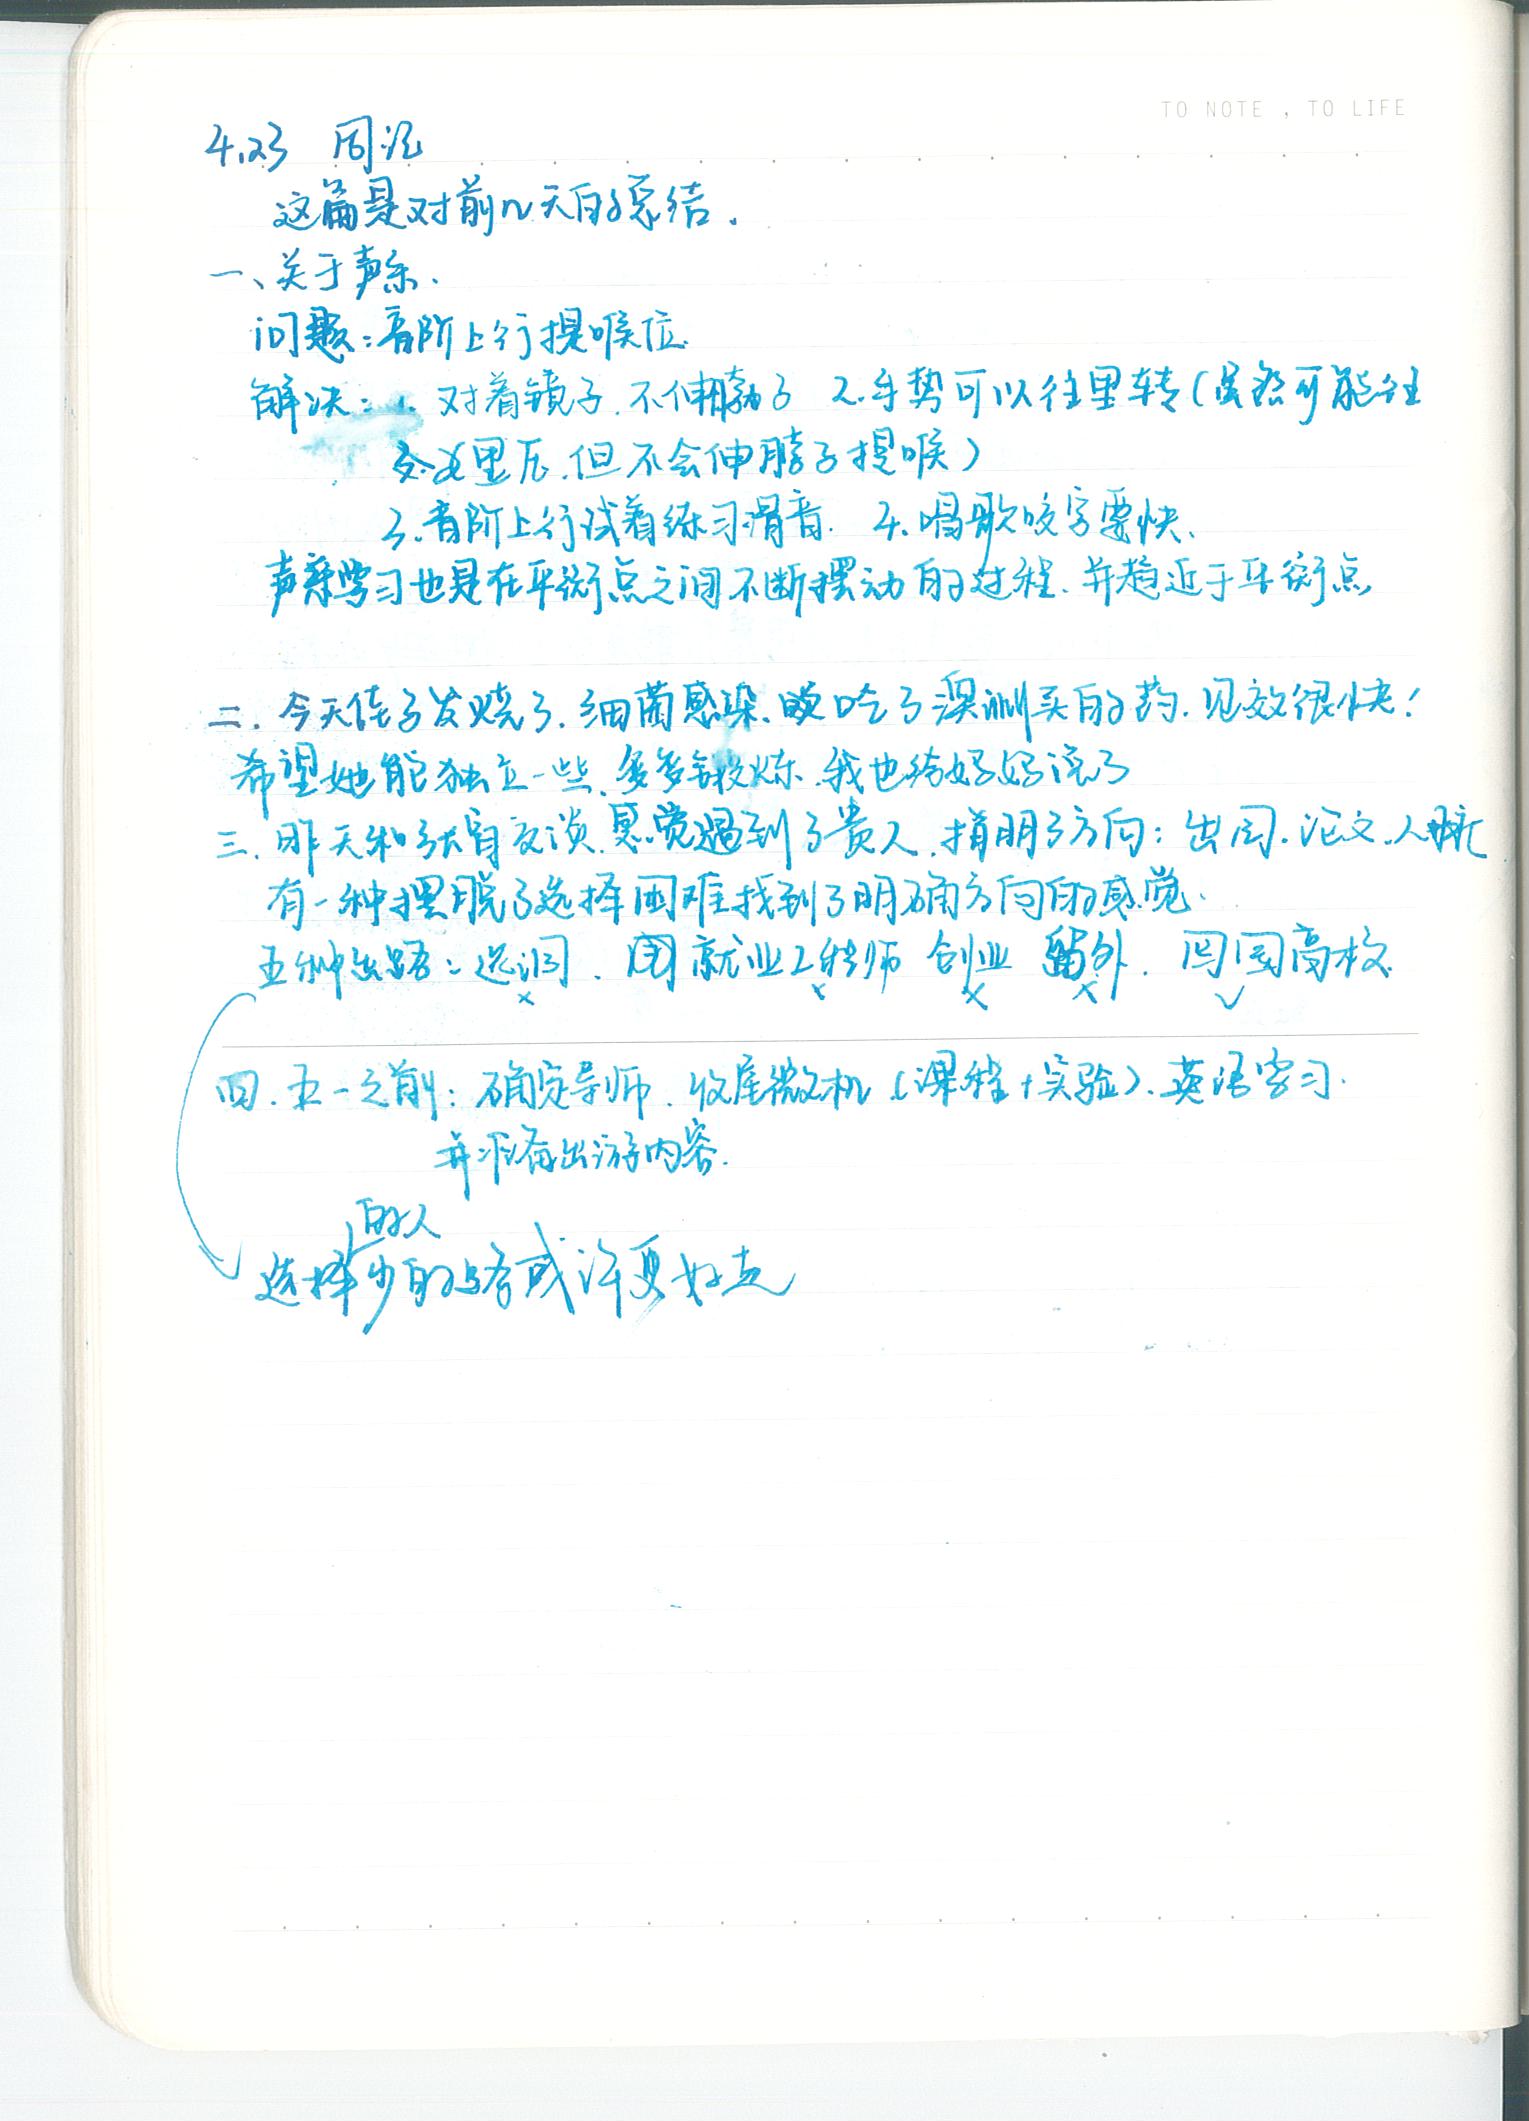 TO NOTE , TO LIFE
4.23 周记
这篇是对前n天的总结.
一、关于声乐.
问题：音阶上行提喉位.
解决：1. 对着镜子.不伸脖子 2.手势可以往里转(虽然可能往
里压.但不会伸脖子提喉)
3.音阶上行试着练习滑音. 4.唱歌咬字要快.
声乐学习也是在平衡点之间不断摆动的过程.并趋近于平衡点
二.今天佳子发烧了.细菌感染.吃了澳洲买的药.见效很快!
希望她能独立一些.多多锻炼.我也给妈妈说了
三.昨天和张睿交谈.感觉遇到了贵人.指明了方向：出国.论文.人脉
有一种摆脱了选择困难找到了明确方向的感觉.
五种出路：选调. 就业工程师 创业 留外. 回国高校.
四.五一之前：确定导师.收尾微机(课程+实验).英语学习.
并准备出游内容.
的人
选择少的路或许更好走